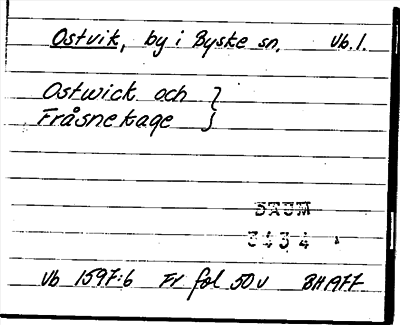 Ostvik, by i Byske sn. Vb. l.
Ostwick och }
Fråsnekage }
DAUM
3434
Vb 1597:6 Fr fol 50 v BH 1977